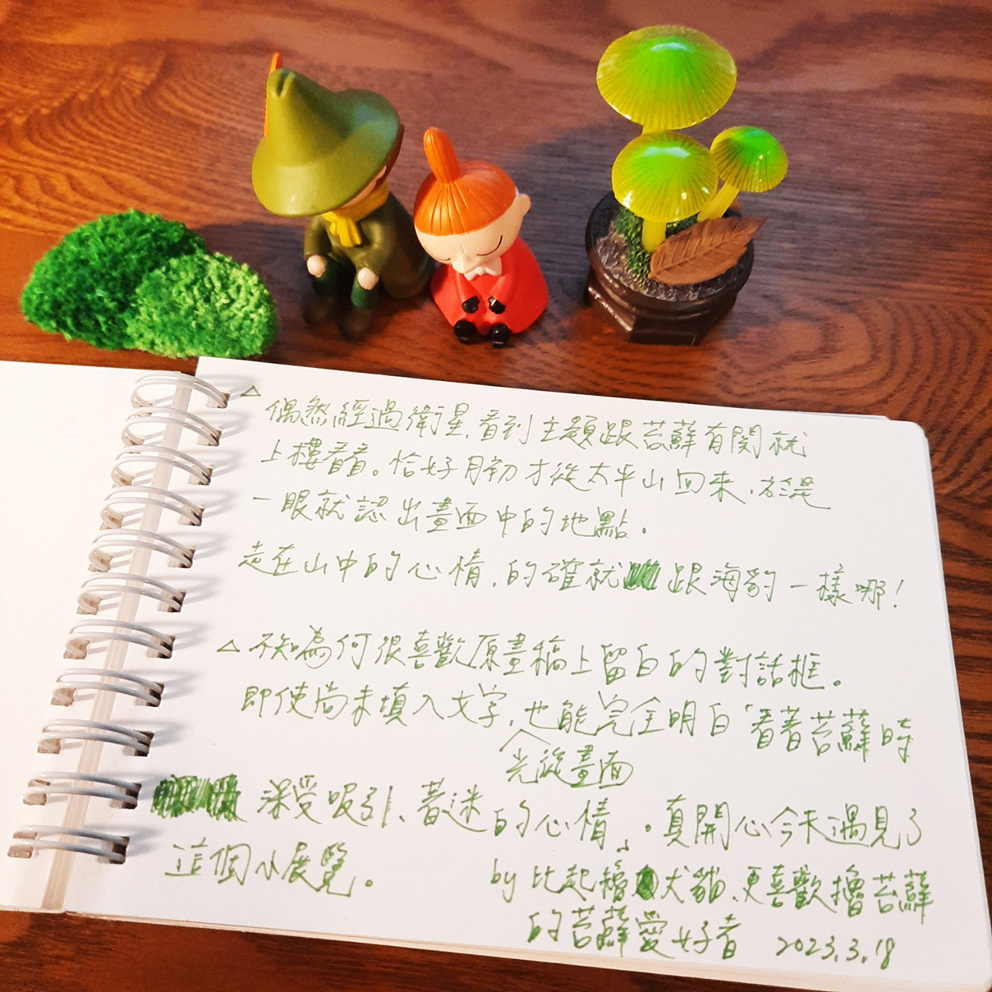 △偶然經過衛星,看到主題跟苔蘚有關就
上樓看看。恰好月初才從太平山回來,於是
一眼就認出畫面中的地點。
走在山中的心情,的確就跟海豹一樣哪!
△不知為何很喜歡原畫稿上留白的對話框。
即使尚未填入文字,也能完全明白「看著苔蘚時
光從畫面
深受吸引、著迷的心情」。真開心今天遇見了
這個小展覽。
by 比起擼犬貓,更喜歡擼苔蘚
的苔蘚愛好者 2023.3.18